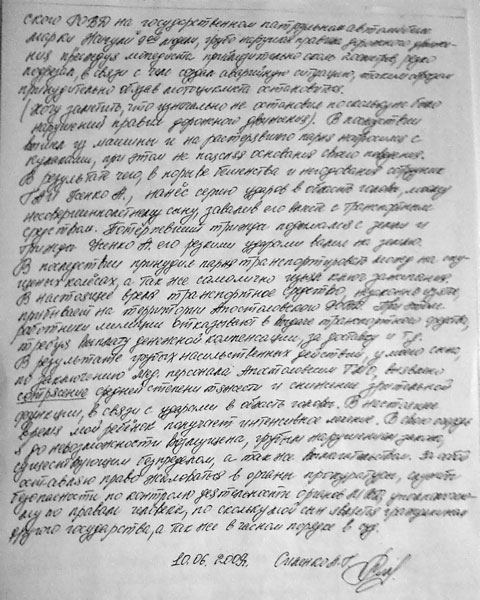 ского РОВД на государственном патрульном автомобиле
марки Жигули модели, грубо нарушая правила дорожного движе-
ния преследуя мопедиста принудительно около, резко
подрезал, в связи с чем создал аварийную ситуацию, таким образом
принудительно обязав мотоциклиста остановиться.
(Хочу заметить, что изначально не остановил поскольку не было
нарушений правил дорожной движения). В последствии
выйдя из машины и на парня набросился с
кулаками, при этом не поясняя основания своего поведения.
В результате чего, в порыве бешенства и негодования сотрудник
ГАИ Усенко А., нанёс серию ударов в область головы, моему
несовершеннолетнему сыну, завалив его вместе с транспортным
средством. Потерпевший трижды поднимался с земли и
трижды Усенко А. его резкими ударами валил на землю.
В последствии принудил парня транспортировать мопед на спу-
щеных колёсах, а так же самолично изъял ключ зажигания.
В настоящее время транспортное средство,
прибывает на территории Апостоловского РОВД. При этом
работники милиции отказывают в выдаче транспортного средства,
требуя выплату денежной компенсации, за доставку и т.д.
В результате грубых насильственных действий, у моего сына,
по заключению мед. персонала Апостоловским ТМО, вызвано
сотрясение средней степени тяжести и снижении зрительной
функции, в связи с ударами в область головы. В настоящее
время мой ребёнок получает интенсивное лечение. В свою очередь
я до невозможности возмущена, грубым нарушением закона,
существующем беспределом, а так же вымогательством. За собой
оставляю право жаловаться в органы прокуратуры, службу
безопасности по контролю деятельности органов МВД, уполномочено-
му по правам человека, по скольку мой сын является гражданином
другого государства, а так же в частном порядке в суд.
10.06.2009г. Сименко А.Г.